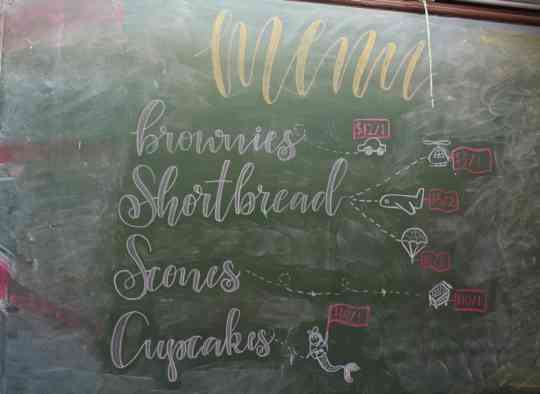 Menu
brownies $12/1
$3/1
Shortbread $5/2
Scones $10/1
Cupcakes $10/1